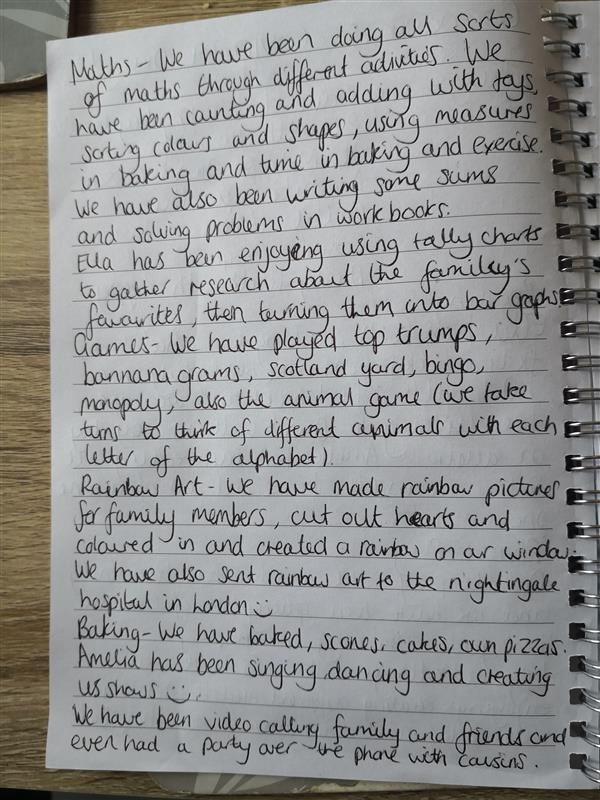 Maths - We have been doing all sorts
of maths through different activities. We
have been counting and adding with toys,
sorting colours and shapes, using measures
in baking and time in baking and exercise.
We have also been writing some sums
and solving problems in workbooks.
Ella has been enjoying using tally charts
to gather research about the familey's
favourites, then turning them into bar graphs.
Games - We have played top trumps,
bannana grams, scotland yard, bingo,
monopoly, also the animal game (we take
turns to think of different animals with each
letter of the alphabet).
Rainbow Art - We have made rainbow pictures
for family members, cut out hearts and
coloured in and created a rainbow on our window.
We have also sent rainbow art to the nightingale
hospital in London ☺
Baking - We have baked, scones, cakes, own pizzas.
Amelia has been singing, dancing and creating
us shows ☺.
We have been video calling family and friends and
even had a party over the phone with cousins.